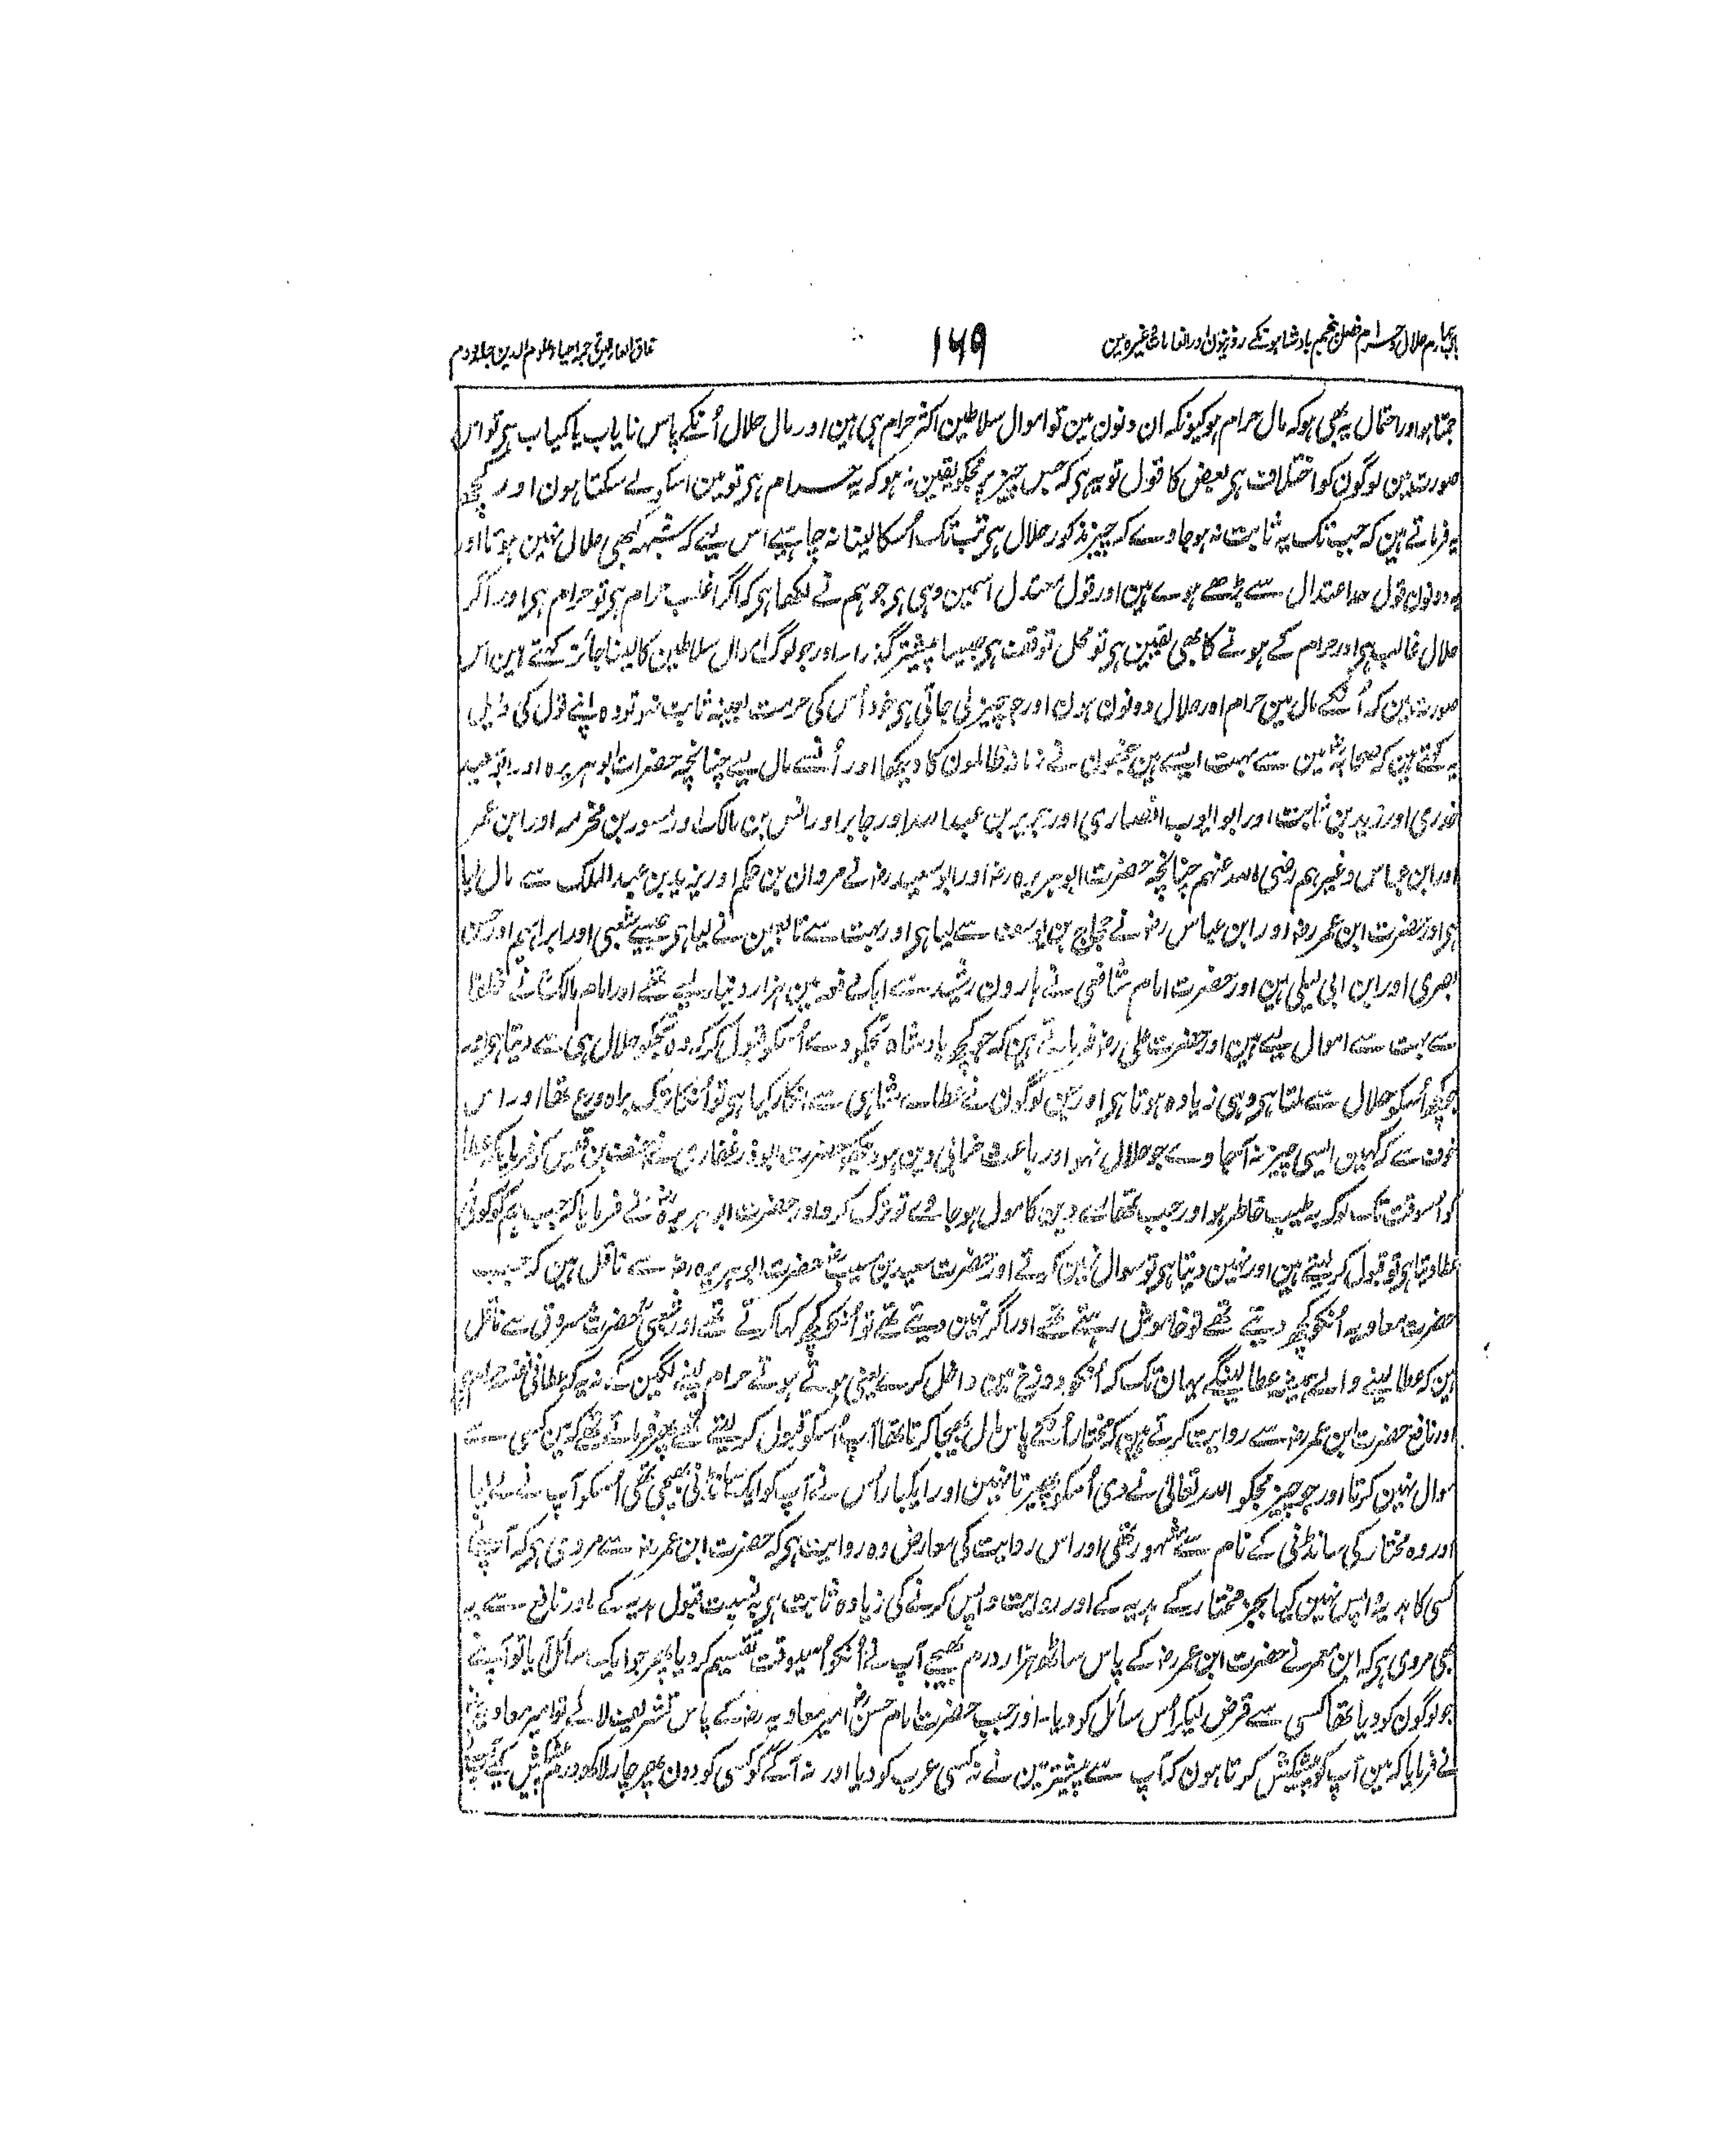 باب چہارم حلال و حرام فصل پنجم بادشاہونکے روزینون اور انعامات وغیرہ مین
۱۶۹
مذاق العارفین ترجمہ احیاء علوم الدین جلد دوم
جتنا ہو اور احتمال یہ بھی ہو کہ مال حرام ہو کیونکہ ان دنون مین تو اموال سلاطین اکثر حرام ہی ہین اور مال حلال اُنکے پاس نایاب یا کمیاب ہی تو اس
صورت مین لوگون کو اختلاف ہی بعض کا قول تو یہ ہی کہ جس چیز پر مجکو یقین نہو کہ یہ حرام ہی تو مین اسکو لے سکتا ہون اور کچھ
یہ فرماتے ہین کہ جب تک یہ ثابت نہ ہو جاوے کہ چیز مذکور حلال ہی تب تک اُسکا لینا نہ چاہیے اس لیے کہ شبہہ کبھی حلال نہین ہوتا اور
یہ دونون قول حد اعتدال سے بڑھے ہوے ہین اور قول معتدل اسمین وہی ہی جو ہم نے لکھا ہی کہ اگر اغلب حرام ہی تو حرام ہی اور اگر
حلال غالب ہی اور حرام کے ہونے کا بھی یقین ہی تو محل توقف ہی جیسا پیشتر گذرا۔ اور جو لوگ اموال سلاطین کا لینا جائز کہتے ہین اس
صورت مین کہ اُنکے مال مین حرام اور حلال دونون ہون اور جو چیز لی جاتی ہی خود اُس کی حرمت بعینہ ثابت نہو تو وہ اپنے قول کی دلیل
یہ کہتے ہین کہ صحابہ مین سے بہت ایسے ہین جنھون نے زمانہ ظالمون کا دیکھا اور اُنسے مال لیے چنانچہ حضرات ابو ہریرہ اور ابو سعید
خدری اور زید بن ثابت اور ابو ایوب انصاری اور جریر بن عبد اللہ اور جابر اور انس بن مالک اور مسور بن مخرمہ اور ابن عمر
اور ابن عباس وغیرہم رضی اللہ عنہم چنانچہ حضرت ابو ہریرہ رض اور ابو سعید رض نے مروان بن حکم اور یزید بن عبد الملک سے مال لیا
ہی اور حضرت ابن عمر رض اور ابن عباس رض نے حجاج بن یوسف سے لیا ہی اور بہت سے تابعین نے لیا ہی جیسے شعبی اور ابراہیم اور حسن
بصری اور ابن ابی لیلی ہین اور حضرت امام شافعی نے ہارون رشید سے ایک دفعہ مین ہزار دینار لیے تھے اور امام مالک نے خلفا
سے بہت سے اموال لیے ہین اور حضرت علی رض فرماتے ہین کہ جو کچھ بادشاہ تجکو دے اُسکو قبول کر کہ وہ تجکو حلال ہی سے دیتا ہی اور
جو کچھ اُسکو حلال سے ملتا ہی وہی زیادہ ہوتا ہی اور جن لوگون نے عطاے شاہی سے انکار کیا ہی تو اُنکا ترک براہ ورع تھا اور اس
خوف سے کہ کہین ایسی چیز نہ آجاوے جو حلال نہو اور باعث خرابی دین ہو دیکھو حضرت ابوذر غفاری نے احنف بن قیس کو فرمایا کہ عطا
کو اُسوقت تک لو کہ بہ طیب خاطر ہو اور جب تمھارے دین کا مول ہو جائے تو ترک کرو اور حضرت ابو ہریرہ رض نے فرمایا کہ جب ہم کو کوئی
عطا دیتا ہی تو قبول کر لیتے ہین اور نہین دیتا ہی تو سوال نہین کرتے اور حضرت سعید بن مسیب حضرت ابو ہریرہ رض سے ناقل ہین کہ جب
حضرت معاویہ اُنکو کچھ دیتے تھے تو خاموش رہتے تھے اور اگر نہین دیتے تھے تو اُنکو کچھ کہا کرتے تھے اور شعبی حضرت مسروق سے ناقل
ہین کہ عطا لینے والے ہمیشہ عطا لینگے یہان تک کہ اُنکو دوزخ مین داخل کرے یعنی ہوتے ہوتے حرام لینے لگین گے نہ یہ کہ عطا فی نفسہ حرام ہی
اور نافع حضرت ابن عمر رض سے روایت کرتے ہین کہ مختار اُنکے پاس مال بھیجا کرتا تھا آپ اُسکو قبول کر لیتے تھے پھر فرماتے تھے کہ مین کسی سے
سوال نہین کرتا اور جو چیز مجکو اللہ تعالی نے دی اُسکو پھیرتا نہین اور ایکبار اُس نے آپ کو ایک سانڈنی بھیجی تھی اُسکو آپ نے لے لیا
اور وہ مختار کی سانڈنی کے نام سے مشہور تھی اور اس روایت کی معارض وہ روایت ہی کہ حضرت ابن عمر رض سے مروی ہی کہ آپ نے
کسی کا ہدیہ واپس نہین کیا بجز مختار کے ہدیہ کے اور روایت واپس کرنے کی زیادہ ثابت ہی بہ نسبت قبول ہدیہ کے اور نافع سے یہ
بھی مروی ہی کہ ابن معمر نے حضرت ابن عمر رض کے پاس ساٹھ ہزار درم بھیجے آپ نے اُنکو اُسیوقت تقسیم کر دیا پھر جو ایک سائل آیا تو آپ نے
جو لوگون کو دیا تھا کسی سے قرض لیکر اُس سائل کو دیا۔ اور جب حضرت امام حسن رض امیر معاویہ رض کے پاس تشریف لائے تو امیر معاویہ رض
نے فرمایا کہ مین آپ کو پیشکش کرتا ہون کہ آپ سے پیشتر مین نے نہ کسی عرب کو دیا اور نہ آگے کو کسی کو دون پھر چار لاکھ درم پیش کیے آپ نے